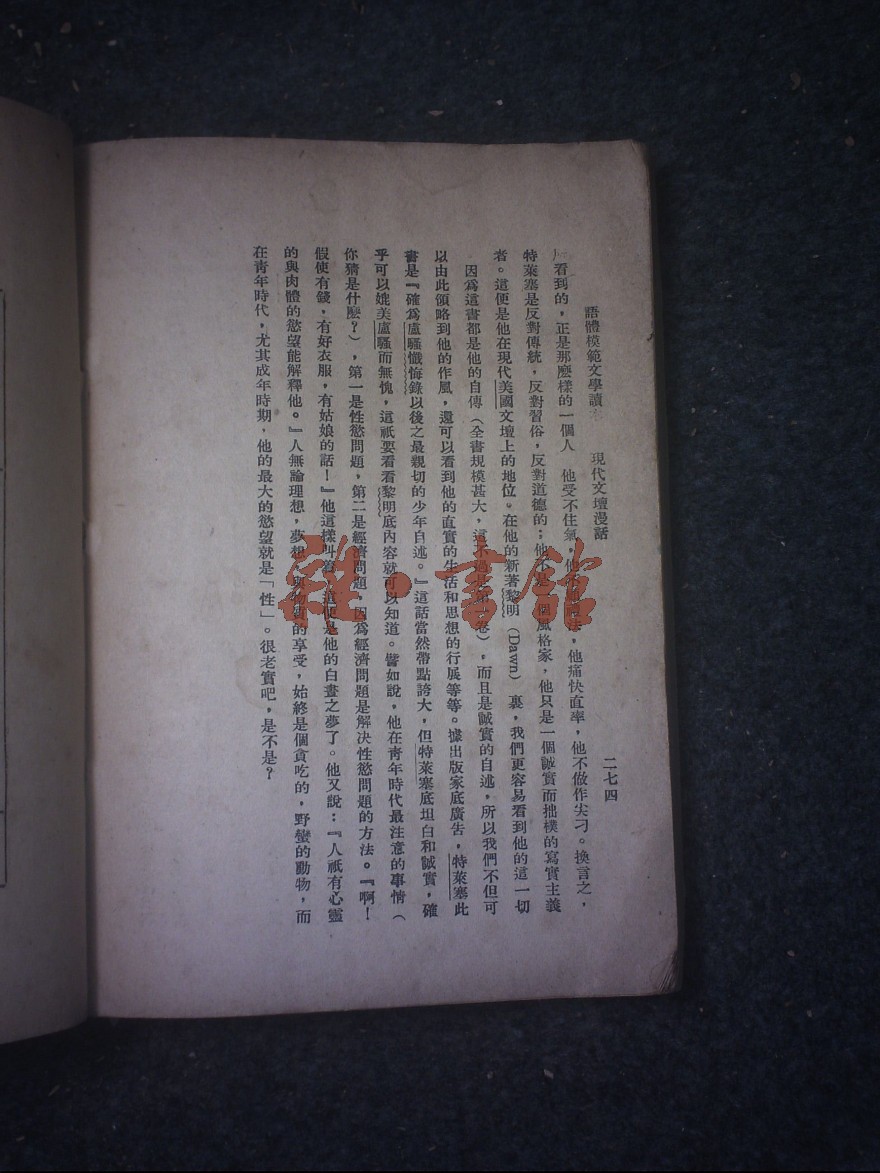 語體模範文學讀 現代文壇漫話 二七四
看到的，正是那麼樣的一個人 他受不住氣，他不 法，他痛快直率，他不做作尖刁。換言之，
特萊塞是反對傳統，反對習俗，反對道德的；他不是一個風格家，他只是一個誠實而拙樸的寫實主義
者。這便是他在現代美國文壇上的地位。在他的新著黎明（Dawn）裏，我們更容易看到他的這一切
因爲這書都是他的自傳（全書規模甚大，這不過是第一卷），而且是誠實的自述，所以我們不但可
以由此領略到他的作風，還可以看到他的直實的生活和思想的行展等等。據出版家底廣告，特萊塞此
書是『確爲盧騷懺悔錄以後之最親切的少年自述。』這話當然帶點誇大，但特萊塞底坦白和誠實，確
乎可以媲美盧騷而無愧，這祇要看看黎明底內容就可以知道。譬如說，他在靑年時代最注意的事情（
你猜是什麼？），第一是性慾問題，第二是經濟問題，因爲經濟問題是解決性慾問題的方法。『啊！
假使有錢，有好衣服，有姑娘的話！』他這樣叫着，這便是他的白晝之夢了。他又說：『人祇有心靈
的與肉體的慾望能解釋他。』人無論理想，夢想，與物質的享受，始終是個貪吃的，野蠻的動物，而
在靑年時代，尤其成年時期，他的最大的慾望就是「性」。很老實吧，是不是？
雜·書館